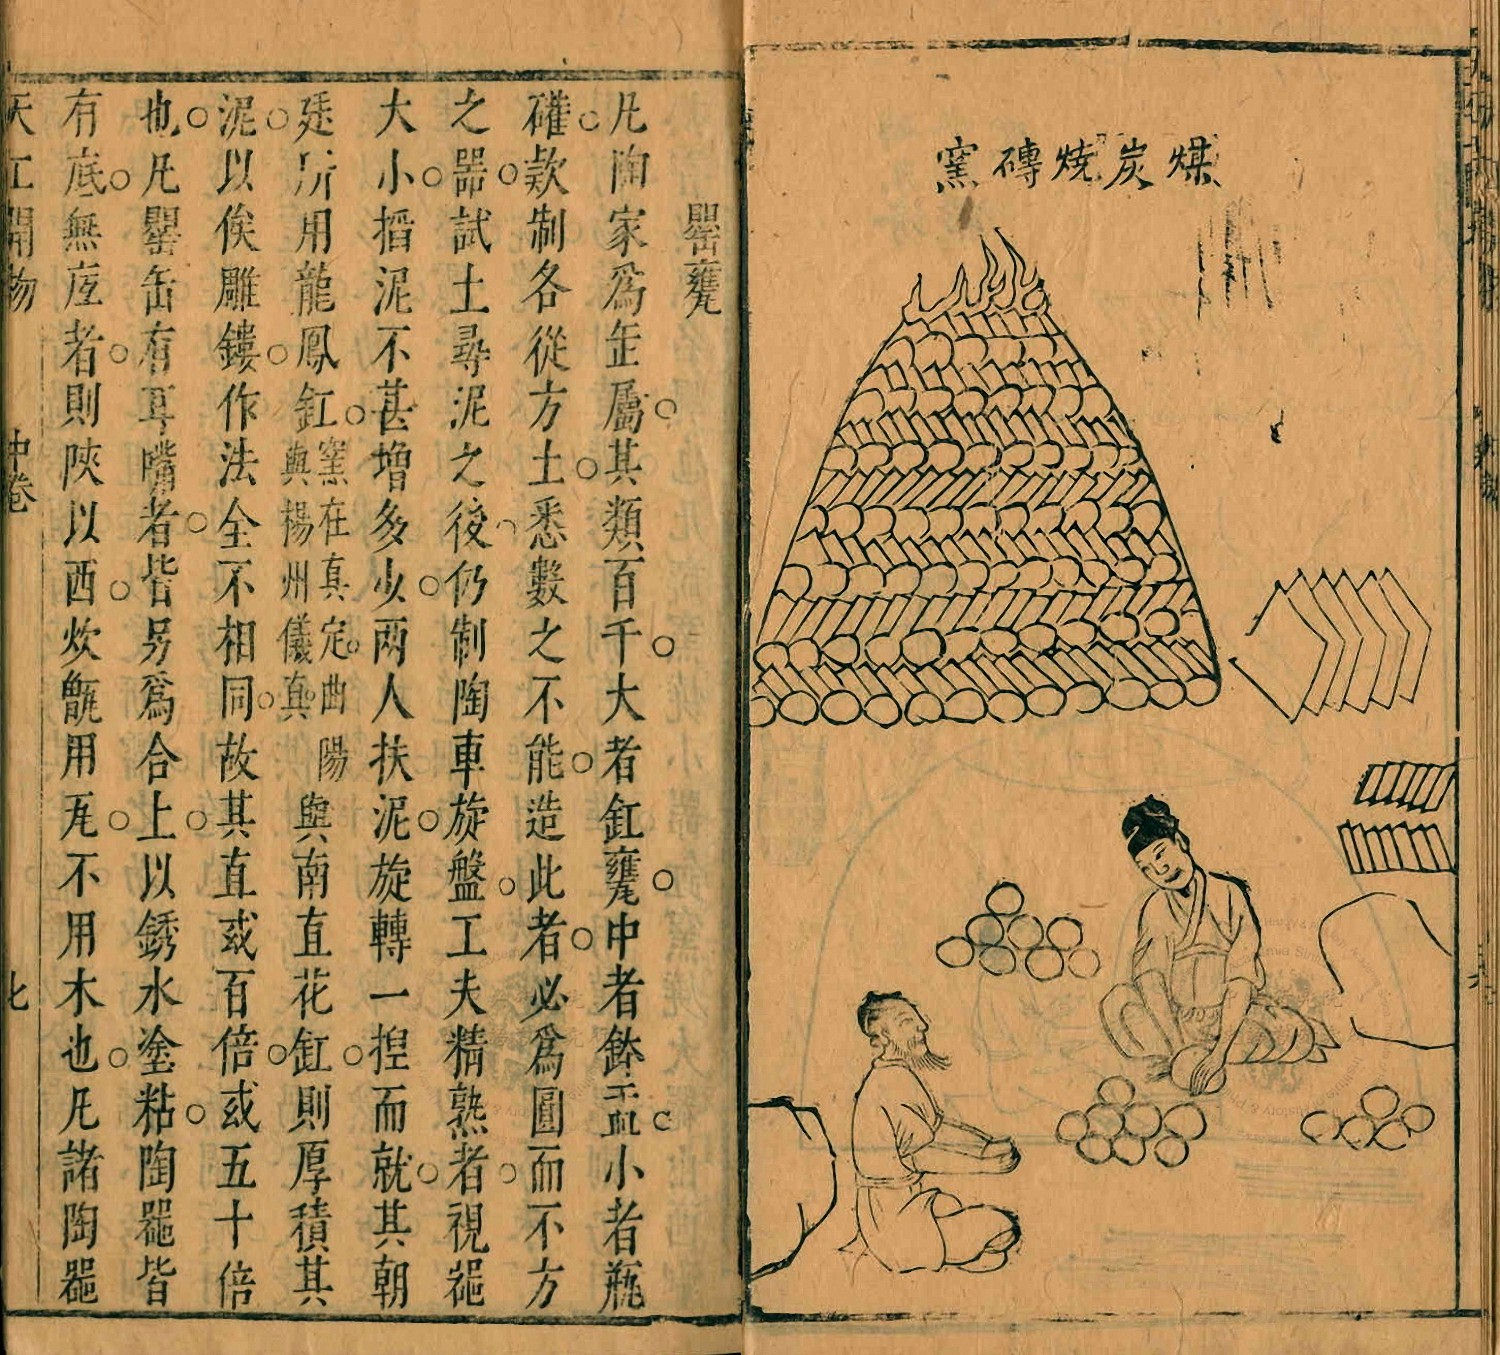 煤炭燒磚窯
罌甕
凡陶家爲缶屬其類百千大者缸甕中者鉢盂小者瓶
礶款制各從方土悉數之不能造此者必爲圓而不方
之器試土尋泥之後仍制陶車旋盤工夫精熟者視器
大小掐泥不甚增多少两人扶泥旋轉一捏而就其朝
廷所用龍鳳缸窯在真定曲陽與楊州儀真與南直花缸則厚積其
泥以俟雕鏤作法全不相同故其直或百倍或五十倍
也凡罌缶有耳嘴者皆另爲合上以銹水塗粘陶器皆
有底無底者則陝以西炊甑用瓦不用木也凡諸陶器
天工開物 中卷